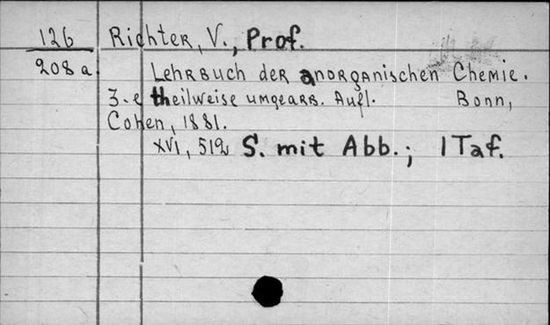 126 Richter, V., Prof.
208a Lehrbuch der anorganischen Chemie.
3-e theilweise umgearb. Aufl. Bonn,
Cohen, 1881.
XVI, 512 S. mit Abb.; 1 Taf.